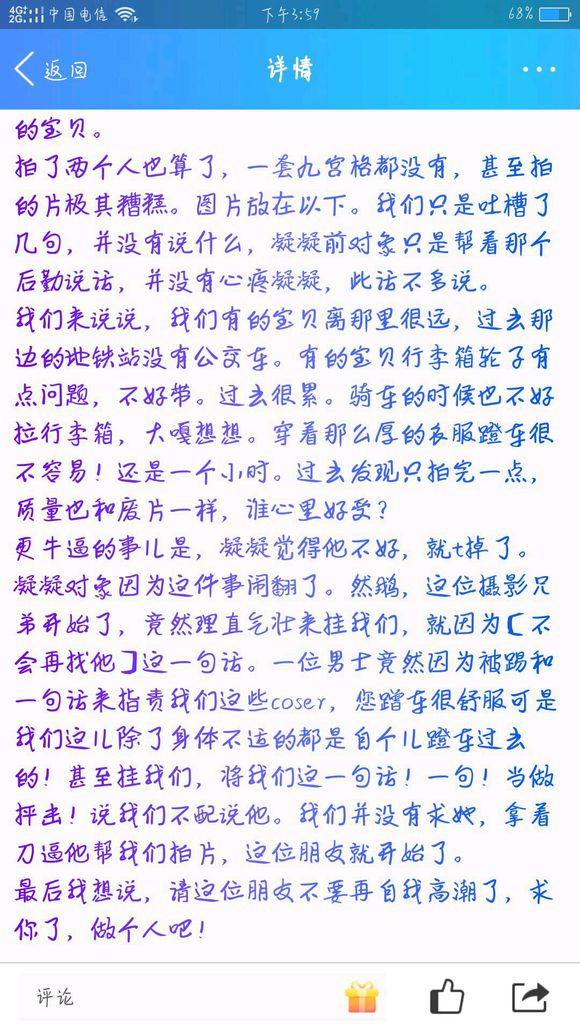 4G+ 2G 中国电信 下午3:59 68%
返回 详情 ···
的宝贝。
拍了两个人也算了，一套九宫格都没有，甚至拍
的片极其糟糕。图片放在以下。我们只是吐槽了
几句，并没有说什么，凝凝前对象只是帮着那个
后勤说话，并没有心疼凝凝，此话不多说。
我们来说说，我们有的宝贝离那里很远，过去那
边的地铁站没有公交车。有的宝贝行李箱轮子有
点问题，不好带。过去很累。骑车的时候也不好
拉行李箱，大嘎想想。穿着那么厚的衣服蹬车很
不容易！还是一个小时。过去发现只拍完一点，
质量也和废片一样，谁心里好受？
更牛逼的事儿是，凝凝觉得他不好，就t掉了。
凝凝对象因为这件事闹翻了。然鹅，这位摄影兄
弟开始了，竟然理直气壮来挂我们，就因为【不
会再找他】这一句话。一位男士竟然因为被踢和
一句话来指责我们这些coser，您蹭车很舒服可是
我们这儿除了身体不适的都是自个儿蹬车过去
的！甚至挂我们，将我们这一句话！一句！当做
抨击！说我们不配说他。我们并没有求她，拿着
刀逼他帮我们拍片，这位朋友就开始了。
最后我想说，请这位朋友不要再自我高潮了，求
你了，做个人吧！
评论